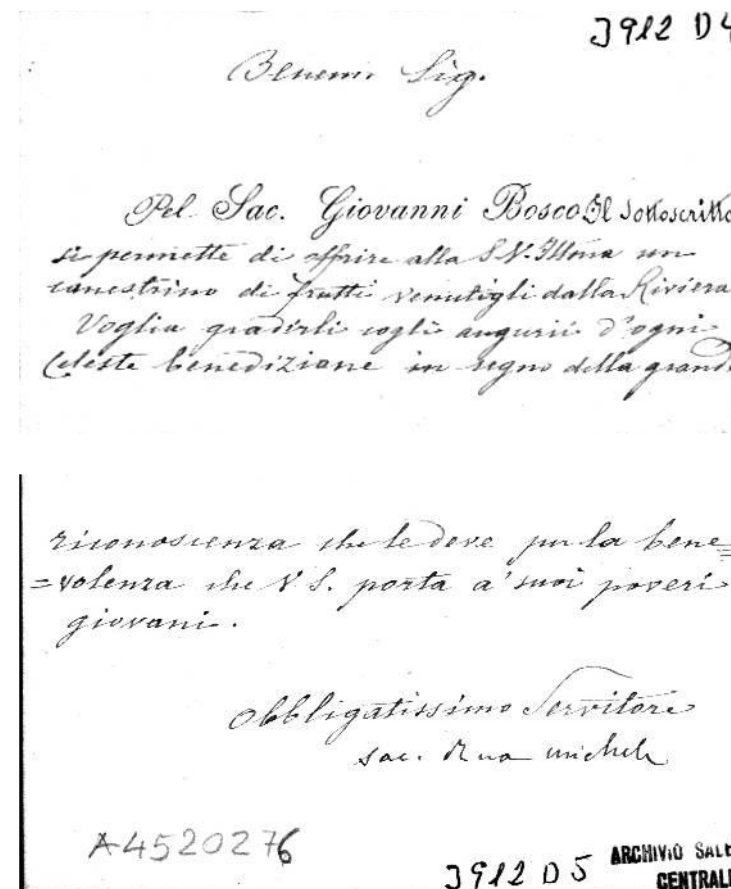 3912 D4
Benem. Sig.
Pel Sac. Giovanni Bosco Il sottoscritto
si permette di offrire alla S.V. Illma un
canestrino di frutti venutigli dalla Riviera
Voglia gradirli cogli augurii d'ogni
Celeste benedizione in segno della grande
riconoscenza che le deve per la bene=
=volenza che V. S. porta a' suoi poveri
giovani.
Obbligatissimo Servitore
sac. Rua Michele
A4520276
3912 D5
ARCHIVIO SALE
CENTRALE